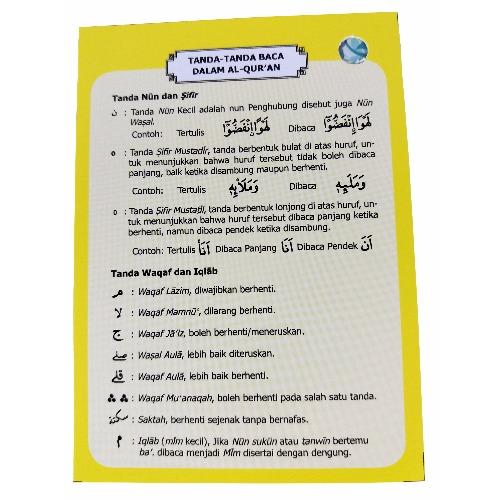 TANDA-TANDA BACA
DALAM AL-QUR'AN
Tanda Nūn dan Şifir
ن : Tanda Nūn Kecil adalah nun Penghubung disebut juga Nūn
Waşal.
Contoh: Tertulis لَهْوًا اِنْفَضُّوْٓا Dibaca لَهْوًا اِنْفَضُّوْٓا
o : Tanda Şifir Mustadīr, tanda berbentuk bulat di atas huruf, un-
tuk menunjukkan bahwa huruf tersebut tidak boleh dibaca
panjang, baik ketika disambung maupun berhenti.
Contoh: Tertulis وَمَلَا۟ىِٕهٖ Dibaca وَمَلَىِٕهٖ
o : Tanda Şifir Mustaţīl, tanda berbentuk lonjong di atas huruf, un-
tuk menunjukkan bahwa huruf tersebut dibaca panjang ketika
berhenti, namun dibaca pendek ketika disambung.
Contoh: Tertulis اَنَا۠ Dibaca Panjang اَنَا Dibaca Pendek اَنَ
Tanda Waqaf dan Iqlāb
مـ : Waqaf Lāzim, diwajibkan berhenti.
لا : Waqaf Mamnū', dilarang berhenti.
ج : Waqaf Jā'iz, boleh berhenti/meneruskan.
صلے : Waşal Aulā, lebih baik diteruskan.
قلے : Waqaf Aulā, lebih baik berhenti.
∴ ∴ : Waqaf Mu'anaqah, boleh berhenti pada salah satu tanda.
سكتة : Saktah, berhenti sejenak tanpa bernafas.
م : Iqlāb (mīm kecil), Jika Nūn sukūn atau tanwīn bertemu
ba'. dibaca menjadi Mīm disertai dengan dengung.